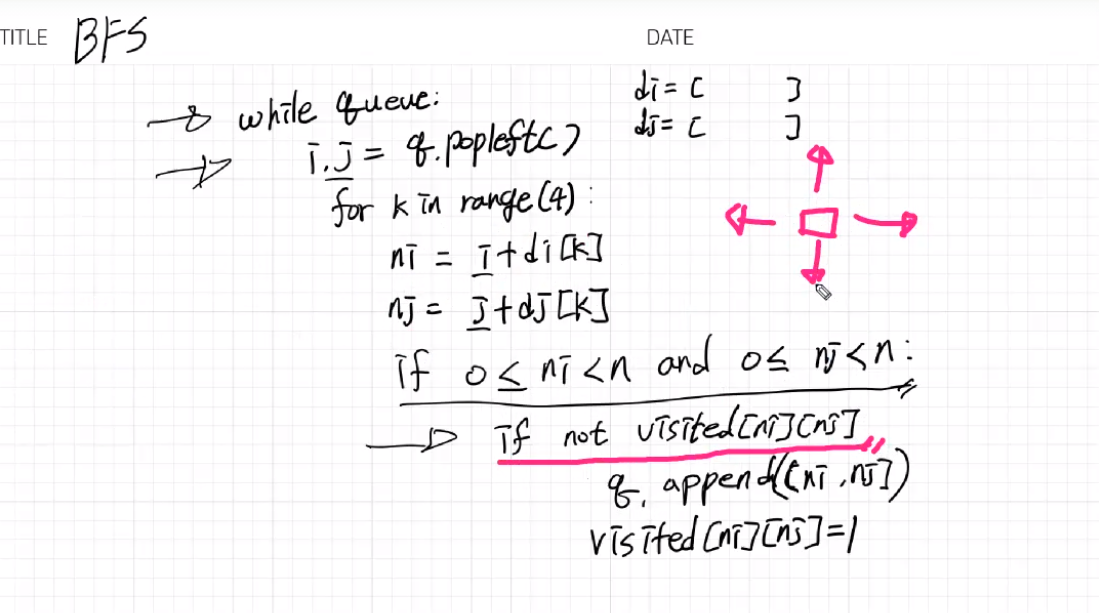 TITLE BFS
DATE
di = [ ]
dj = [ ]
while queue:
i, j = q.popleft()
for k in range(4):
ni = i + di[k]
nj = j + dj[k]
if 0 ≤ ni < n and 0 ≤ nj < n:
if not visited[ni][nj]
q. append([ni, nj])
visited[ni][nj]=1